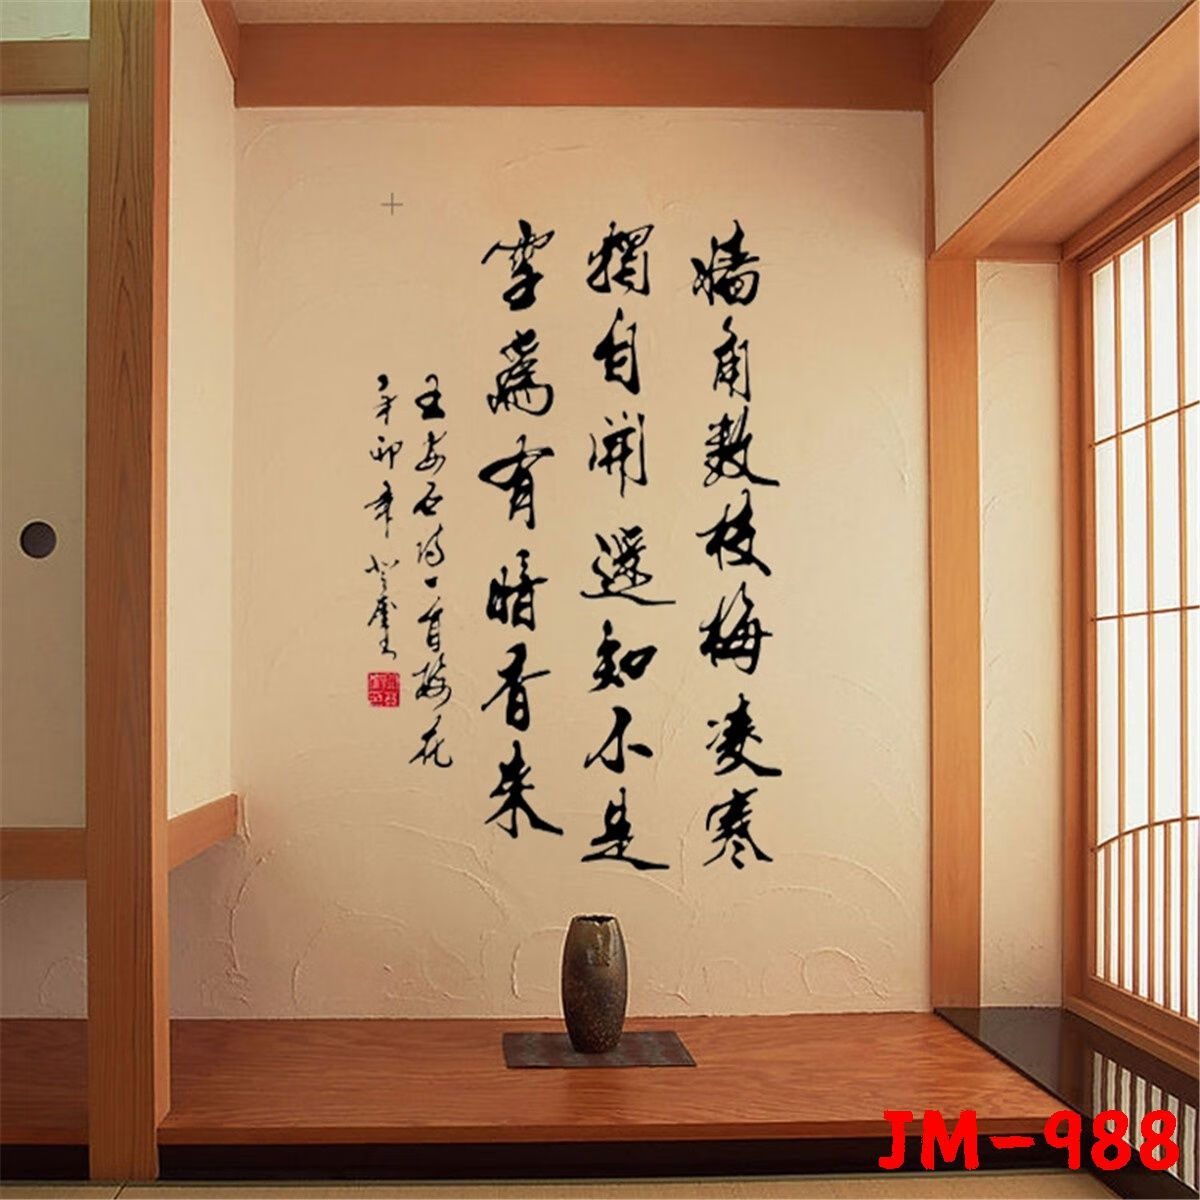 墙角数枝梅凌寒
獨自開遥知不是
雪為有暗香来
王安石诗一首梅花
辛卯年
JM-988